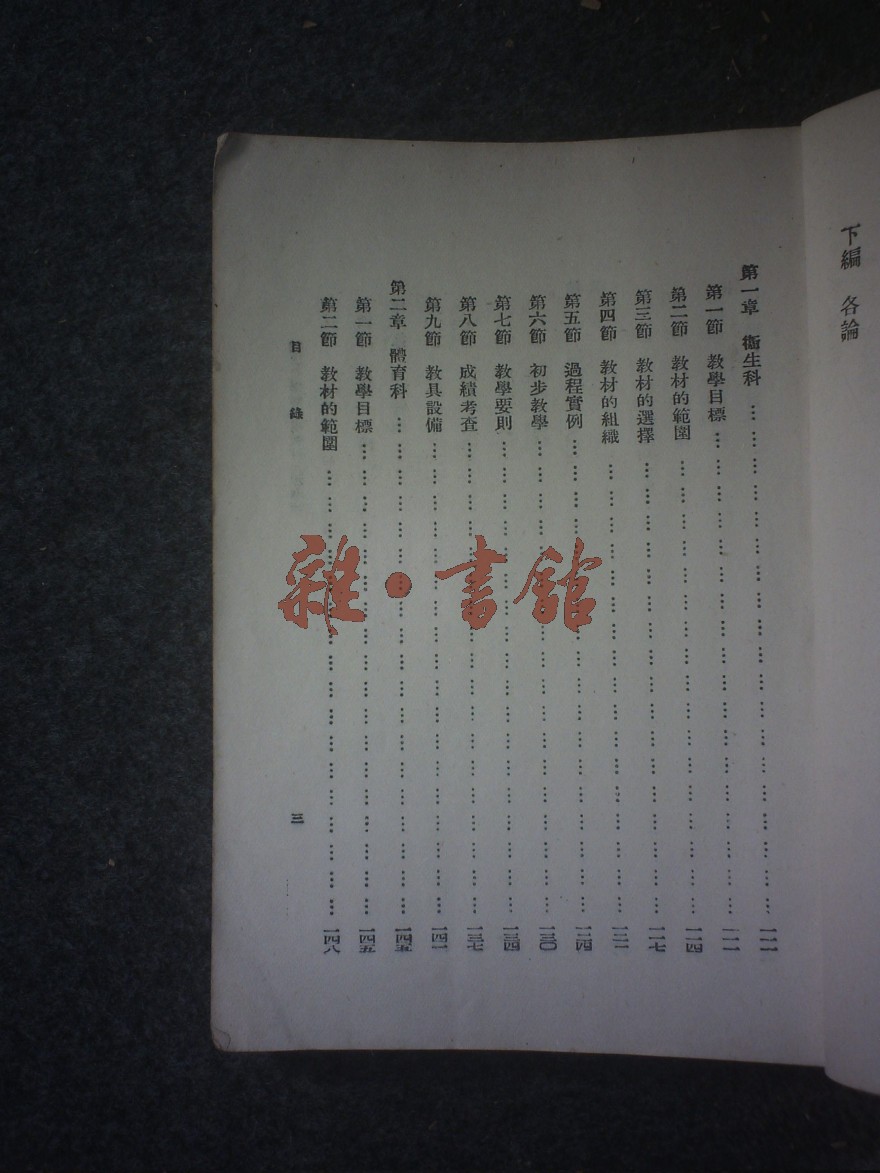 下編 各論
第一章 衞生科 … … … … … … … … … … … … … … … … … … 一一一
第一節 教學目標 … … … … … … … … … … … … … … … … … 一一一
第二節 教材的範圍 … … … … … … … … … … … … … … … … 一一四
第三節 教材的選擇 … … … … … … … … … … … … … … … … 一一七
第四節 教材的組織 … … … … … … … … … … … … … … … …
第五節 過程實例 … … … … … … … … … … … … … … … … … 一二四
第六節 初步教學 … … … … … … … … … … … … … … … … … 一三〇
第七節 教學要則 … … … … … … … … … … … … … … … … … 一三四
第八節 成績考查 … … … … … … … … … … … … … … … … … 一三七
第九節 教具設備 … … … … … … … … … … … … … … … … … 一四一
第二章 體育科 … … … … … … … … … … … … … … … … … … 一四五
第一節 教學目標 … … … … … … … … … … … … … … … … … 一四五
第二節 教材的範圍 … … … … … … … … … … … … … … … … 一四八
目 錄
三
雜·書館